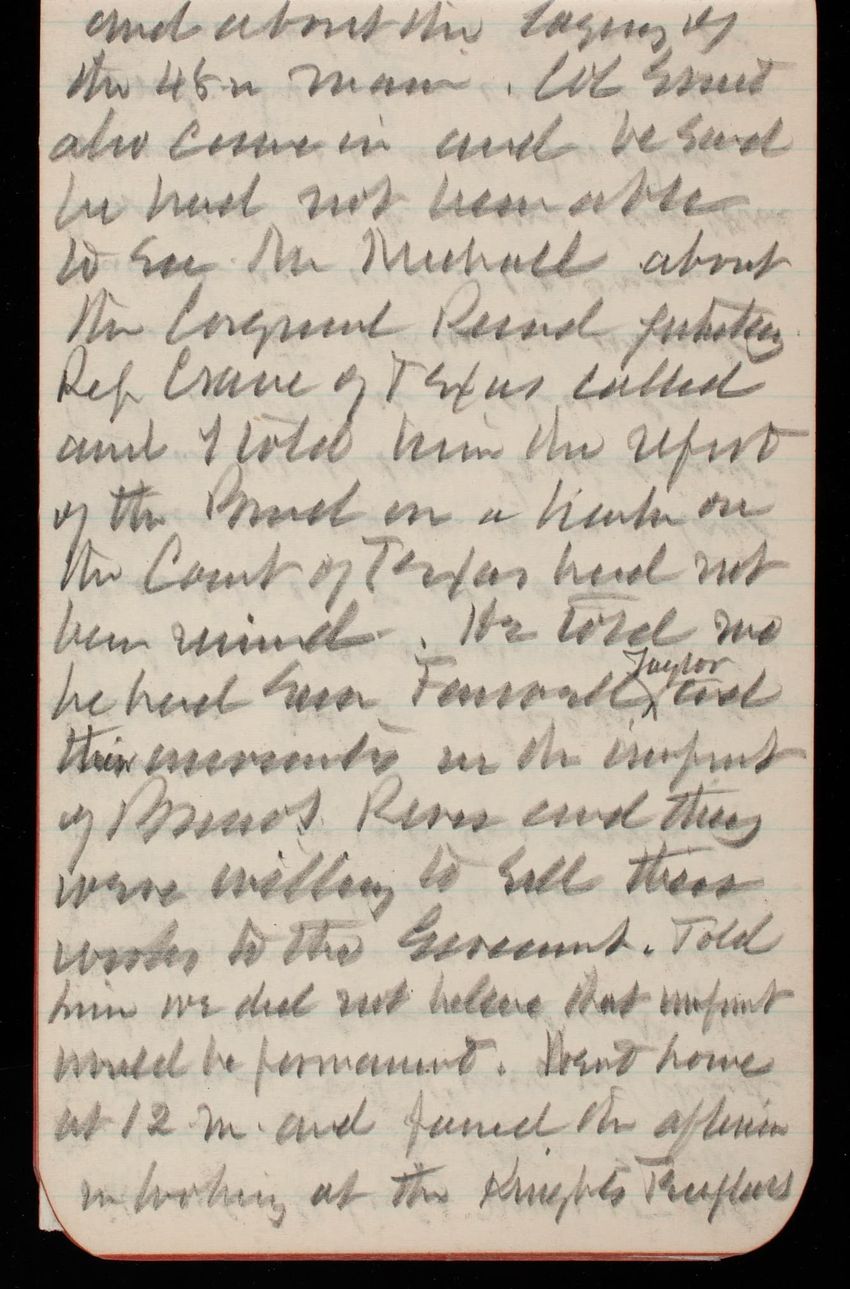 and about the laying of
the 48 in main. Col Ernst
also came in and he said
he had not been able
to see Mr Michall about
the Congress Record printing
Rep Crane of Texas called
and I told him the report
of the Board on a harbor on
the Coast of Texas had not
been received. He told me
he had seen Farwell Taylor and
their associates in the
of Brazos River and they
were willing to sell their
works to the Government. Told
him we did not believe that
would be permanent. Went home
at 12 m. and passed the afternoon
in looking at the Knights Templars